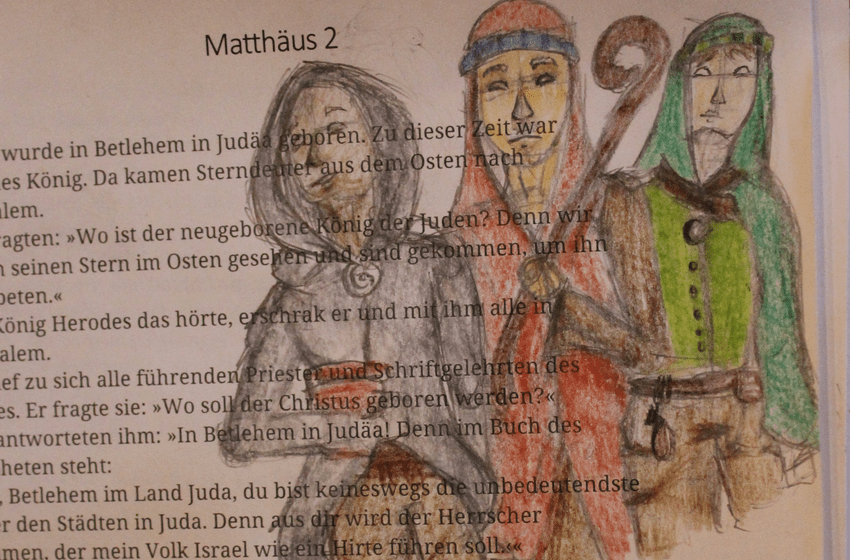 Matthäus 2
wurde in Betlehem in Judäa geboren. Zu dieser Zeit war
es König. Da kamen Sterndeuter aus dem Osten nach
alem.
ragten: »Wo ist der neugeborene König der Juden? Denn wir
n seinen Stern im Osten gesehen und sind gekommen, um ihn
beten.«
König Herodes das hörte, erschrak er und mit ihm alle in
alem.
ef zu sich alle führenden Priester und Schriftgelehrten des
es. Er fragte sie: »Wo soll der Christus geboren werden?«
antworteten ihm: »In Betlehem in Judäa! Denn im Buch des
heten steht:
, Betlehem im Land Juda, du bist keineswegs die unbedeutendste
r den Städten in Juda. Denn aus dir wird der Herrscher
men, der mein Volk Israel wie ein Hirte führen soll.‹«